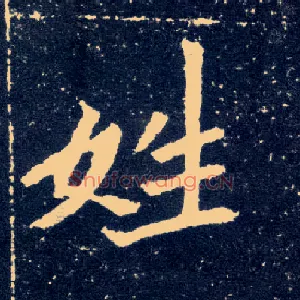 姓
Shufawang.CN